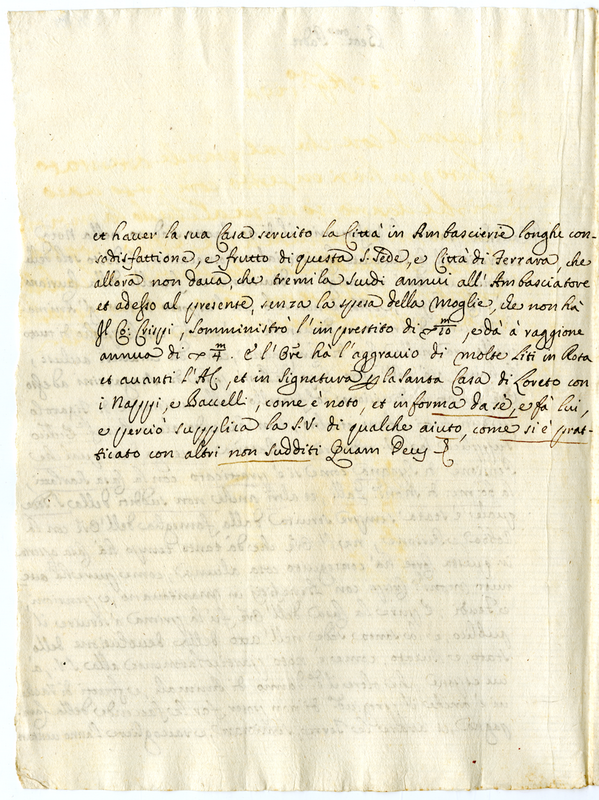 et hauer la sua Casa seruito la Città in Ambascierie longhe con-
sodisfattione, e frutto di questa S. Sede, e Città di Ferrara, che
allora non dauà, che tremila scudi annui all'Ambasciatore
et adesso al presente, senza la spesa della Moglie, che non hà
Il C: Crispi, somministrò l'imprestito di m/10 e dà à raggione
annua di m/4. E l'Ore hà l'aggrauio di molte Liti in Rota
et auanti l'AC, et in Signatura la Santa Casa di Loreto con
i Nappi, e Bauelli, come è noto, et informa da sè, e fà lui,
e perciò supplica la S.V. di qualche aiuto, come si è prat-
ticato con altri non sudditi Quam Deus